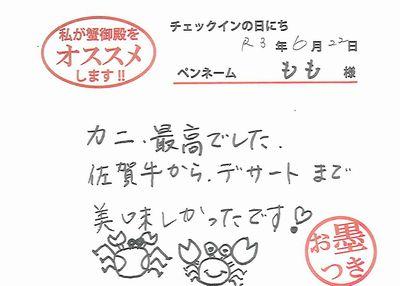 私が蟹御殿を
オススメ
します!!
チェックインの日にち
R3年6月22日
ペンネーム もも 様
カニ、最高でした。
佐賀牛から、デザートまで
美味しかったです♡
お墨
つき